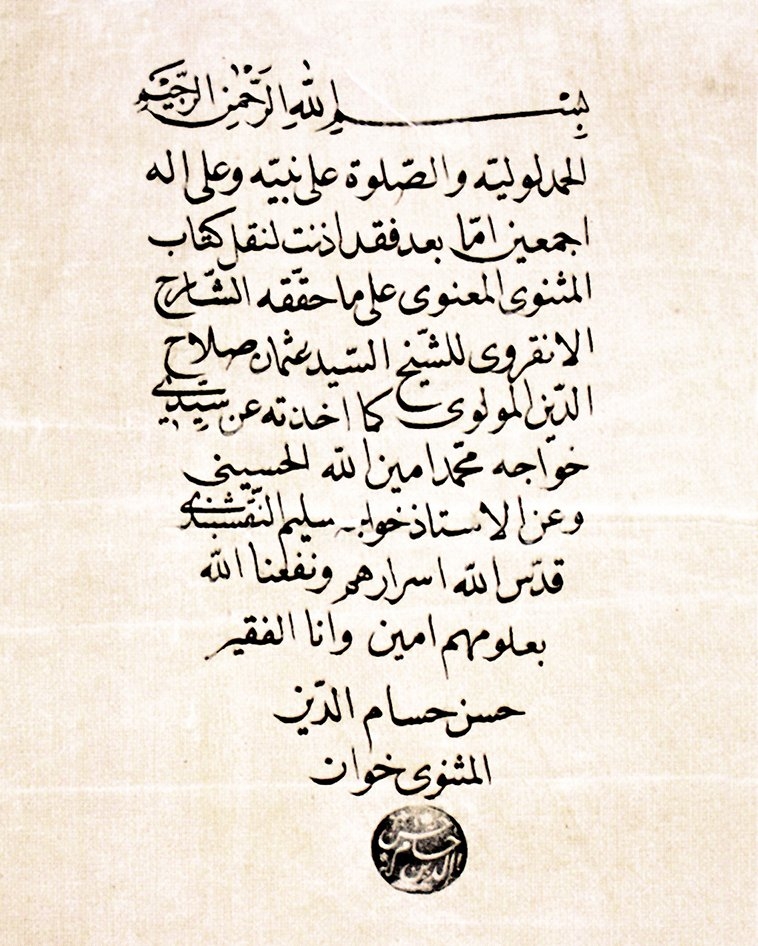 بِسْمِ اللهِ الرَّحْمٰنِ الرَّحِيْمِ
الحمد لوليّه والصّلوة على نبيّه وعلى اله
اجمعين امّا بعد فقد اذنت لنقل كتاب
المثنوى المعنوى على ما حقّقه الشّارح
الانقروى للشّيخ السّيد عثمان صلاح
الدّين المولوى كما اخذته عن سيّدى
خواجه محمّد امين الله الحسينى
وعن الاستاذ خواجه سليم النّقشبندى
قدّس الله اسرارهم ونفعنا الله
بعلومهم امين وانا الفقير
حسن حسام الدّين
المثنوى خوان
حسن حسام الدين